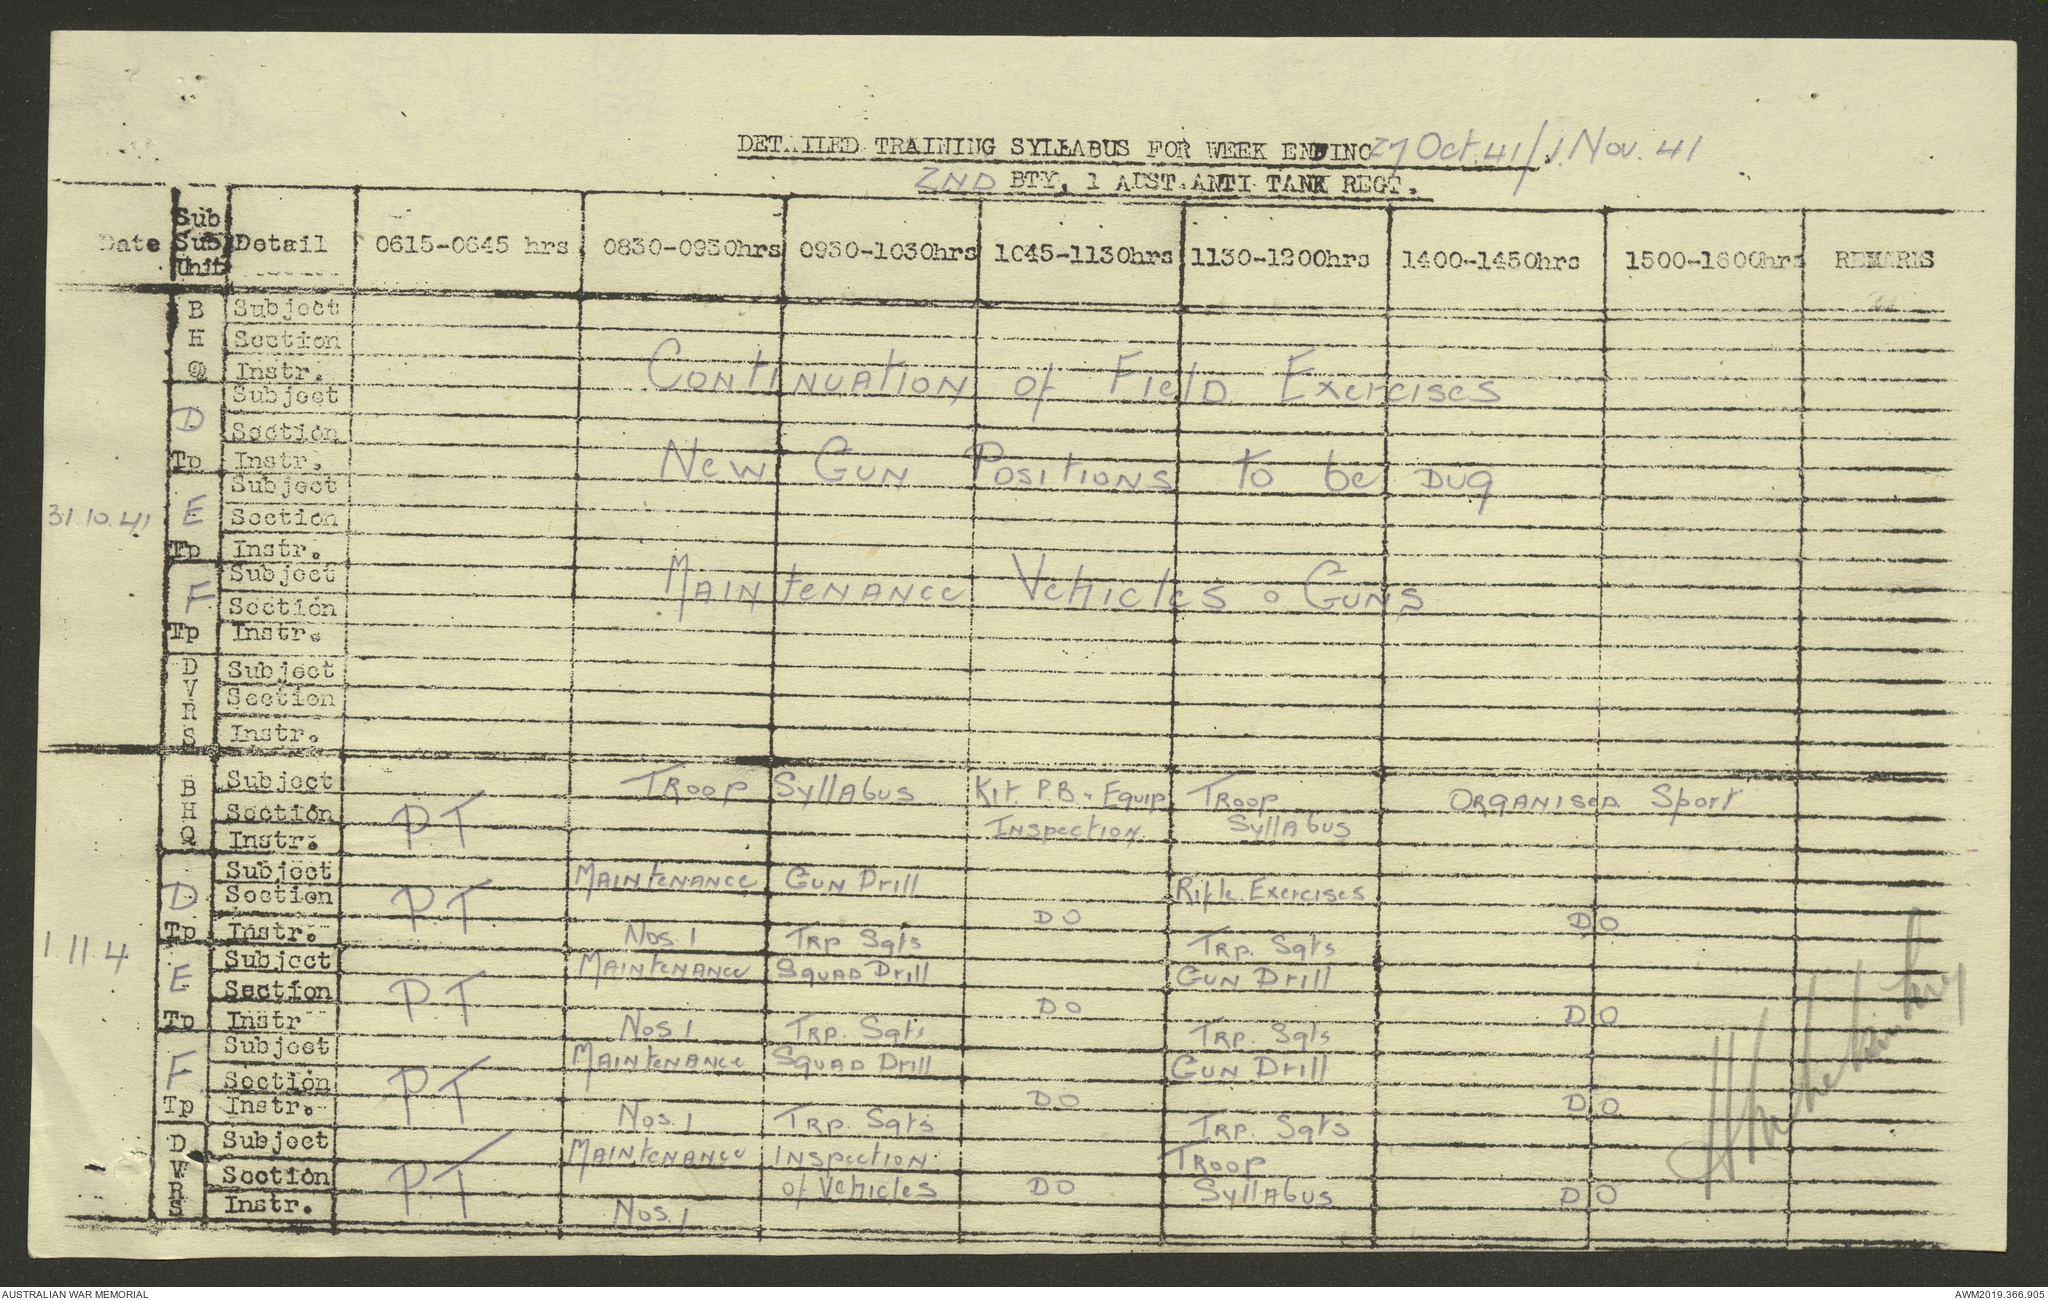 DETAILED TRAINING SYLLABUS FOR WEEK ENDING 27 Oct. 41/1. Nov. 41
2ND BTY, 1 AUST. ANTI TANK REGT.
Date Sub Sub Unit Detail 0615-0645 hrs 0830-0930hrs 0930-1030hrs 1045-1130hrs 1130-1200hrs 1400-1450hrs 1500-1600hrs REMARKS
31.10.41
B H Q Subject
Section
Instr.
Continuation of Field Exercises
D Tp Subject
Section
Instr.
New Gun Positions to be Dug
E Tp Subject
Section
Instr.
F Tp Subject
Section
Instr.
Maintenance Vehicles & Guns
D V R S Subject
Section
Instr.
1.11.4
B H Q Subject Troop Syllabus Kit P.B. & Equip Troop Organised Sport
Section PT Inspection Syllabus
Instr.
D Tp Subject Maintenance Gun Drill Rifle Exercises
Section PT DO DO
Instr. Nos. 1 Trp Sgts Trp. Sgts
E Tp Subject Maintenance Squad Drill Gun Drill
Section PT DO DO
Instr Nos 1 Trp. Sgts Trp. Sgts
F Tp Subject Maintenance Squad Drill Gun Drill
Section PT DO DO
Instr. Nos. 1 Trp. Sgts Trp. Sgts
D V R S Subject Maintenance Inspection Troop
Section PT of Vehicles DO Syllabus DO
Instr. Nos. 1
AUSTRALIAN WAR MEMORIAL
AWM2019.366.905